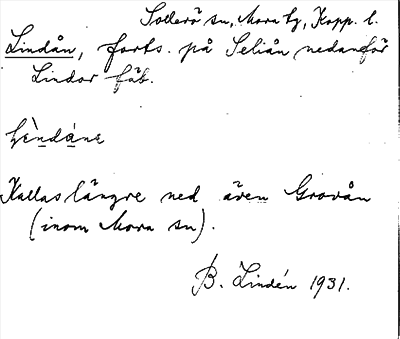 Sollerö sn, Mora tg, Kopp. l.
Lindån, forts. på Seliån nedanför
Lindor fäb.
lèndáne
Kallas längre ned även Grovån
(inom Mora sn).
B. Lindén 1931.